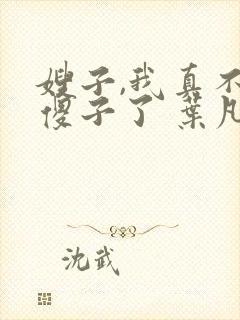 嫂子,我真不
傻子了 葉凡
沈武